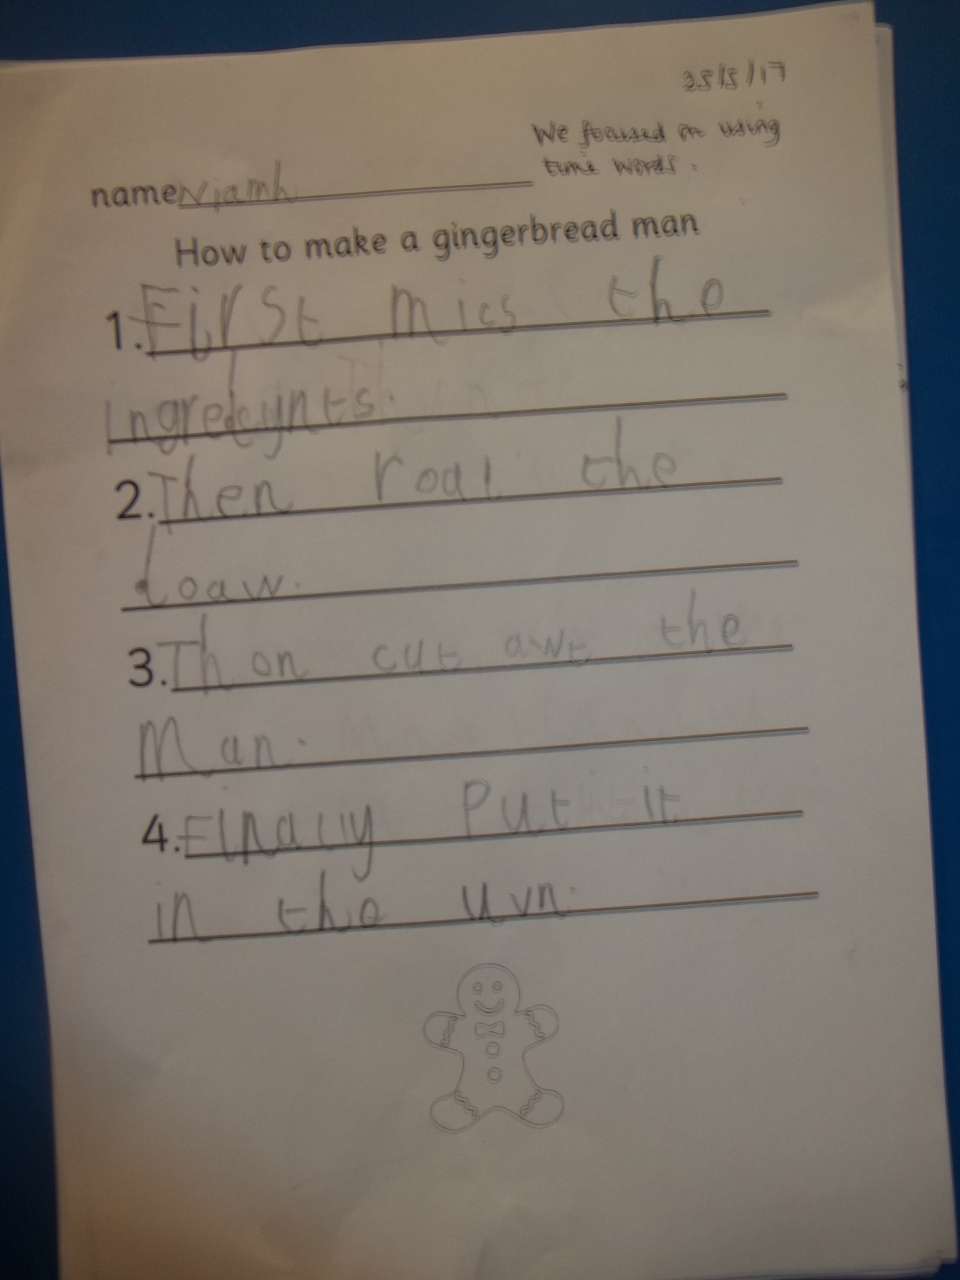 25/5/17
We focused on using
time words.
name Niamh
How to make a gingerbread man
1. First mics the
ingredeynts.
2. Then roal the
doaw.
3. Then cut awt the
Man.
4. Finally Put it
in the uvn.